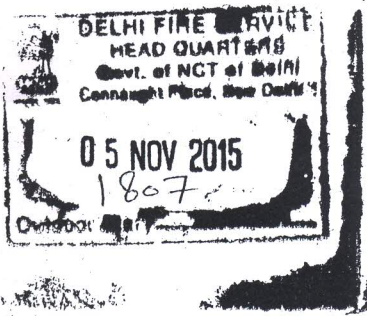 DELHI FIRE SERVICE
HEAD QUARTERS
Govt. of NCT of Delhi
Connaught Place, New Delhi-1
05 NOV 2015
1807